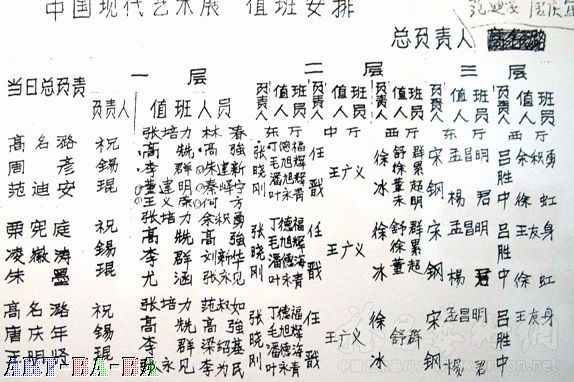 中国现代艺术展 值班安排
总负责人
当日总负责 一层 二层 三层
负责人 值班人员 负责人 值班人员 值班人员 负责人 值班人员 负责人 值班人员 负责人 值班人员
东厅 中厅 西厅 东厅 西厅
张培力 林春
高名潞 祝 高 兟 高強 张 丁德福 任 徐 舒群 宋 孟昌明 吕 余积勇
周彦 錫 李群 朱建新 晓 毛旭輝 王广义 徐累 胜
范迪安 琨 董建明 秦绎宁 刚 潘德海 戬 冰 董超明 钢 杨君 中 徐虹
王义 何方 叶永青
栗宪庭 祝 张培力 余积勇 张 丁德福 任 徐 舒群 宋 孟昌明 吕 王友身
凌徽涛 錫 高兟 高強 晓 毛旭輝 王广义 徐累 胜
朱墨 琨 李群 刘新华 刚 潘德海 戬 冰 董超 钢 杨君 中 徐虹
尤涵 张永见 叶永青
高名潞 祝 张培力 范叔如 张 丁德福 任 徐 舒群 宋 孟昌明 吕 王友身
唐庆年 錫 高兟 高強 晓 毛旭輝 王广义 胜
王明贤 琨 李群 梁绍基 刚 潘德海 戬 冰 钢 杨君 中
张永见 何为民 叶永青
ART-BA-BA